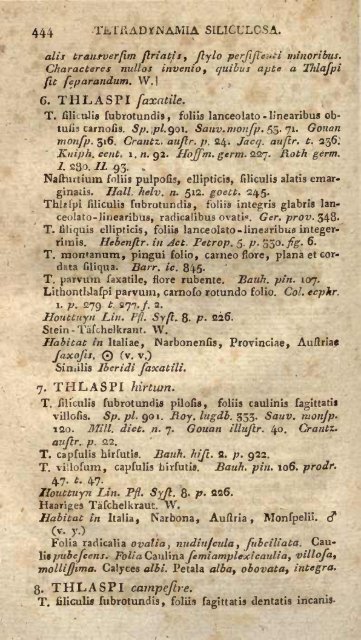 444 TETRADYNAMIA SILICULOSA.
alis transversim striatis, stylo persistenti minoribus.
Characteres nullos invenio, quibus apte a Thlaspi
sit separandum. W.]
6. THLASPI saxatile.
T. siliculis subrotundis, foliis lanceolato-linearibus ob-
tusis carnosis. Sp. pl. 901. Sauv. monsp. 53. 71. Gouan
monsp. 316. Crantz. austr. p. 24. Jacq. austr. t. 236.
Kniph. cent. 1. n. 92. Hoffm. germ. 227. Roth germ.
I. 280. II. 93.
Nasturtium foliis pulposis, ellipticis, siliculis alatis emar-
ginatis. Hall. helv. n. 512. goett. 245.
Thlaspi siliculis subrotundis, foliis integris glabris lan-
ceolato-linearibus, radicalibus ovatis. Ger. prov. 348.
T. siliquis ellipticis, foliis lanceolato-linearibus integer-
rimis. Hebenstr. in Act. Petrop. 5. p. 330. fig. 6.
T. montanum, pingui folio, carneo flore, plana et cor-
data siliqua. Barr. ic. 845.
T. parvum saxatile, flore rubente. Bauh. pin. 107.
Lithonthlaspi parvum, carnoso rotundo folio. Col. ecphr.
1. p. 279. t. 277. f. 2.
Houttuyn Lin. Pfl. Syst. 8. p. 226.
Stein-Täschelkraut. W.
Habitat in Italiae, Narbonensis, Provinciae, Austriae
saxosis, ☉ (v. v.)
Similis Iberidi saxatili.
7. THLASPI hirtum.
T. siliculis subrotundis pilosis, foliis caulinis sagittatis
villosis. Sp. pl. 901. Roy. lugdb. 333. Sauv. monsp.
120. Mill. dict. n. 7. Gouan illustr. 40. Crantz.
austr. p. 22.
T. capsulis hirsutis. Bauh. hist. 2. p. 922.
T. villosum, capsulis hirsutis. Bauh. pin. 106. prodr.
47. t. 47.
Houttuyn Lin. Pfl. Syst. 8. p. 226.
Haariges Täschelkraut. W.
Habitat in Italia, Narbona, Austria, Monspelii. ♂
(v. v.)
Folia radicalia ovalia, nudiuscula, subciliata. Cau-
lis pubescens. Folia Caulina semiamplexicaulia, villosa,
mollissima. Calyces albi. Petala alba, obovata, integra.
8. THLASPI campestre.
T. siliculis subrotundis, foliis sagittatis dentatis incanis.